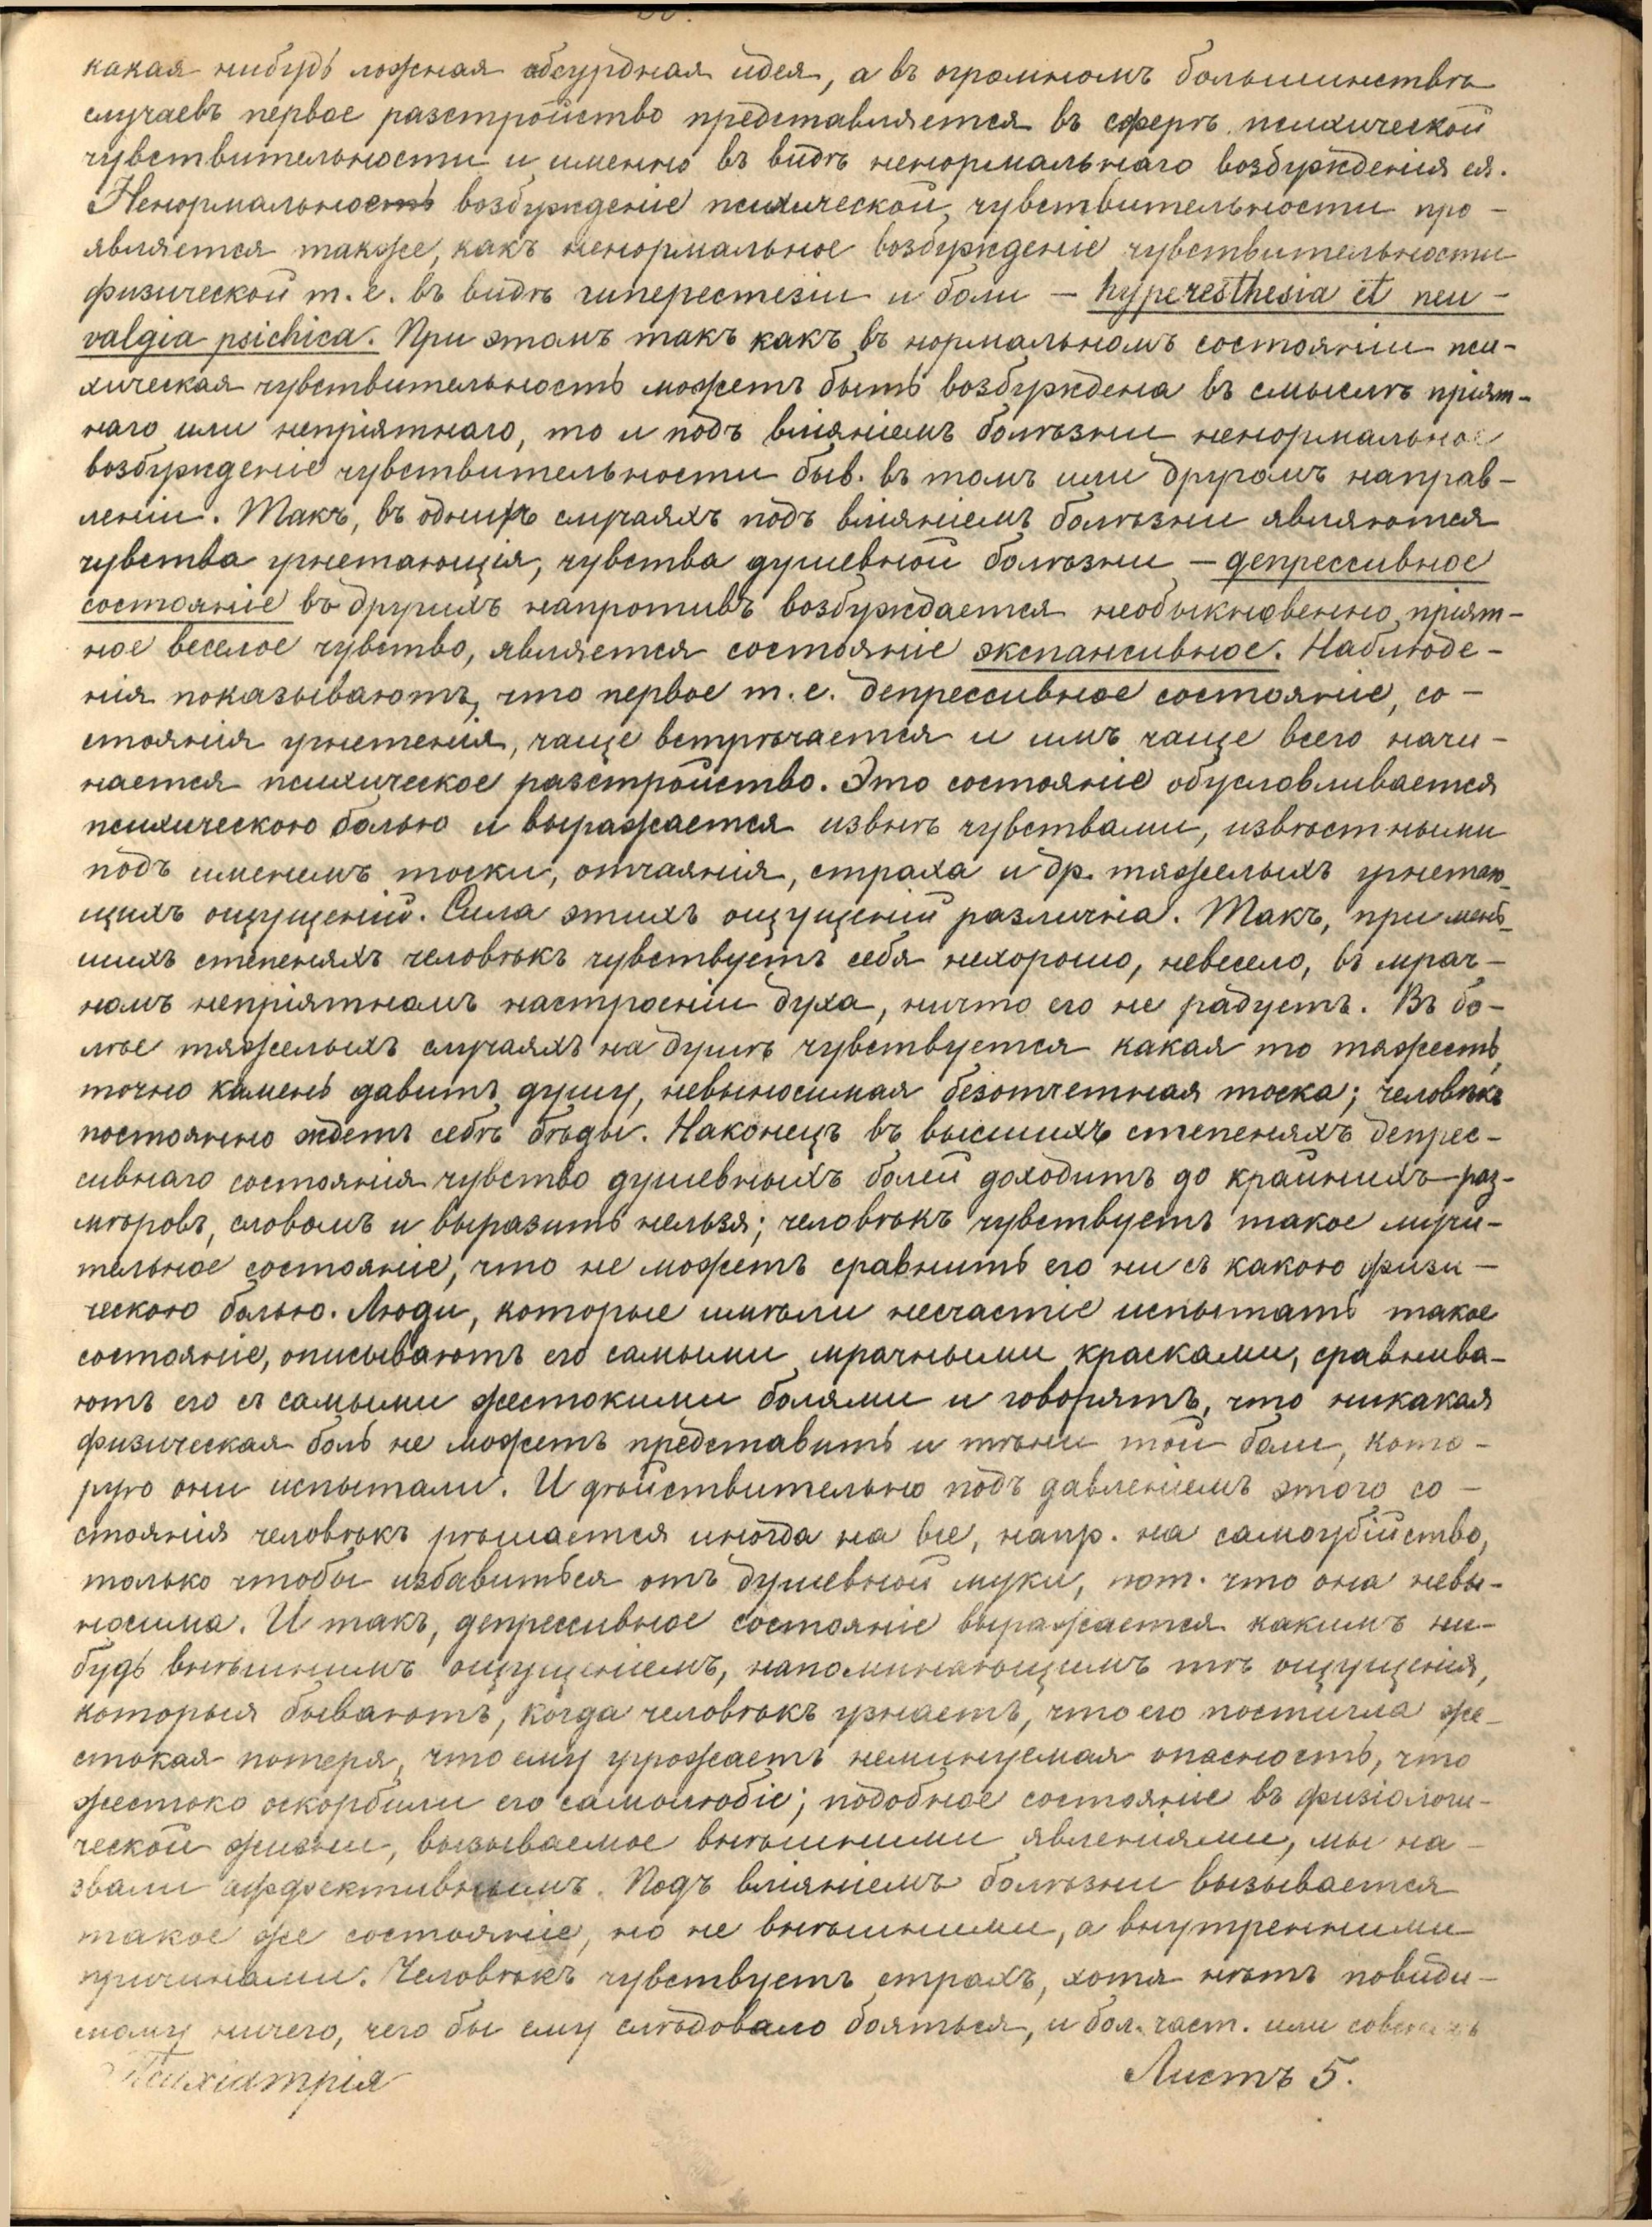 какая нибудь ложная абсурдная идея, а въ огромномъ большинствѣ
случаевъ первое разстройство представляется въ сферѣ психической
чувствительности и именно въ видѣ ненормальнаго возбужденія ея.
Ненормальность возбужденіе психической чувствительности про-
является также, какъ ненормальное возбужденіе чувствительности
физической т. е. въ видѣ гиперестезіи и боли — hyperesthesia et neu-
ralgia psichica. При этомъ такъ какъ въ нормальномъ состояніи пси-
хическая чувствительность можетъ быть возбуждена въ смыслѣ пріят-
наго или непріятнаго, то и подъ вліяніемъ болѣзни ненормальное
возбужденіе чувствительности быв. въ томъ или другомъ направ-
леніи. Такъ, въ однихъ случаяхъ подъ вліяніемъ болѣзни являются
чувства угнетающія, чувства душевной болѣзни — депрессивное
состояніе въ другихъ напротивъ возбуждается необыкновенно пріят-
ное веселое чувство, является состояніе экспансивное. Наблюде-
нія показываютъ, что первое т. е. депрессивное состояніе, со-
стоянія угнетенія, чаще встрѣчается и имъ чаще всего начи-
нается психическое разстройство. Это состояніе обусловливается
психическою болью и выражается извнѣ чувствами, извѣстными
подъ именемъ тоски, отчаянія, страха и др. тяжелыхъ угнетаю-
щихъ ощущеній. Сила этихъ ощущеній различна. Такъ, при мень-
шихъ степеняхъ человѣкъ чувствуетъ себя нехорошо, невесело, въ мрач-
номъ непріятномъ настроеніи духа, ничто его не радуетъ. Въ бо-
лѣе тяжелыхъ случаяхъ на душѣ чувствуется какая то тяжесть,
точно камень давитъ душу, невыносимая безотчетная тоска; человѣкъ
постоянно ждетъ себѣ бѣды. Наконецъ въ высшихъ степеняхъ депрес-
сивнаго состоянія чувство душевныхъ болей доходитъ до крайнихъ раз-
мѣровъ, словомъ и выразить нельзя; человѣкъ чувствуетъ такое мучи-
тельное состояніе, что не можетъ сравнить его ни съ какою физи-
ческою болью. Люди, которые имѣли несчастіе испытать такое
состояніе, описываютъ его самыми мрачными красками, сравнива-
ютъ его съ самыми жестокими болями и говорятъ, что никакая
физическая боль не можетъ представить и тѣни той боли, кото-
рую они испытали. И дѣйствительно подъ давленіемъ этого со-
стоянія человѣкъ рѣшается иногда на все, напр. на самоубійство,
только чтобы избавиться отъ душевной муки, пот. что она невы-
носима. И такъ, депрессивное состояніе выражается какимъ ни-
будь внѣшнимъ ощущеніемъ, напоминающимъ тѣ ощущенія,
которыя бываютъ, когда человѣкъ узнаетъ, что его постигла же-
стокая потеря, что ему угрожаетъ неминуемая опасность, что
жестоко оскорбили его самолюбіе; подобное состояніе въ физіологи-
ческой жизни, вызываемое внѣшними явленіями, мы на-
звали аффективнымъ. Подъ вліяніемъ болѣзни вызывается
такое же состояніе, но не внѣшними, а внутренними
причинами. Человѣкъ чувствуетъ страхъ, хотя нѣтъ повиди-
мому ничего, чего бы ему слѣдовало бояться, и бол. част. или совсѣмъ
Психіатрія Листъ 5.